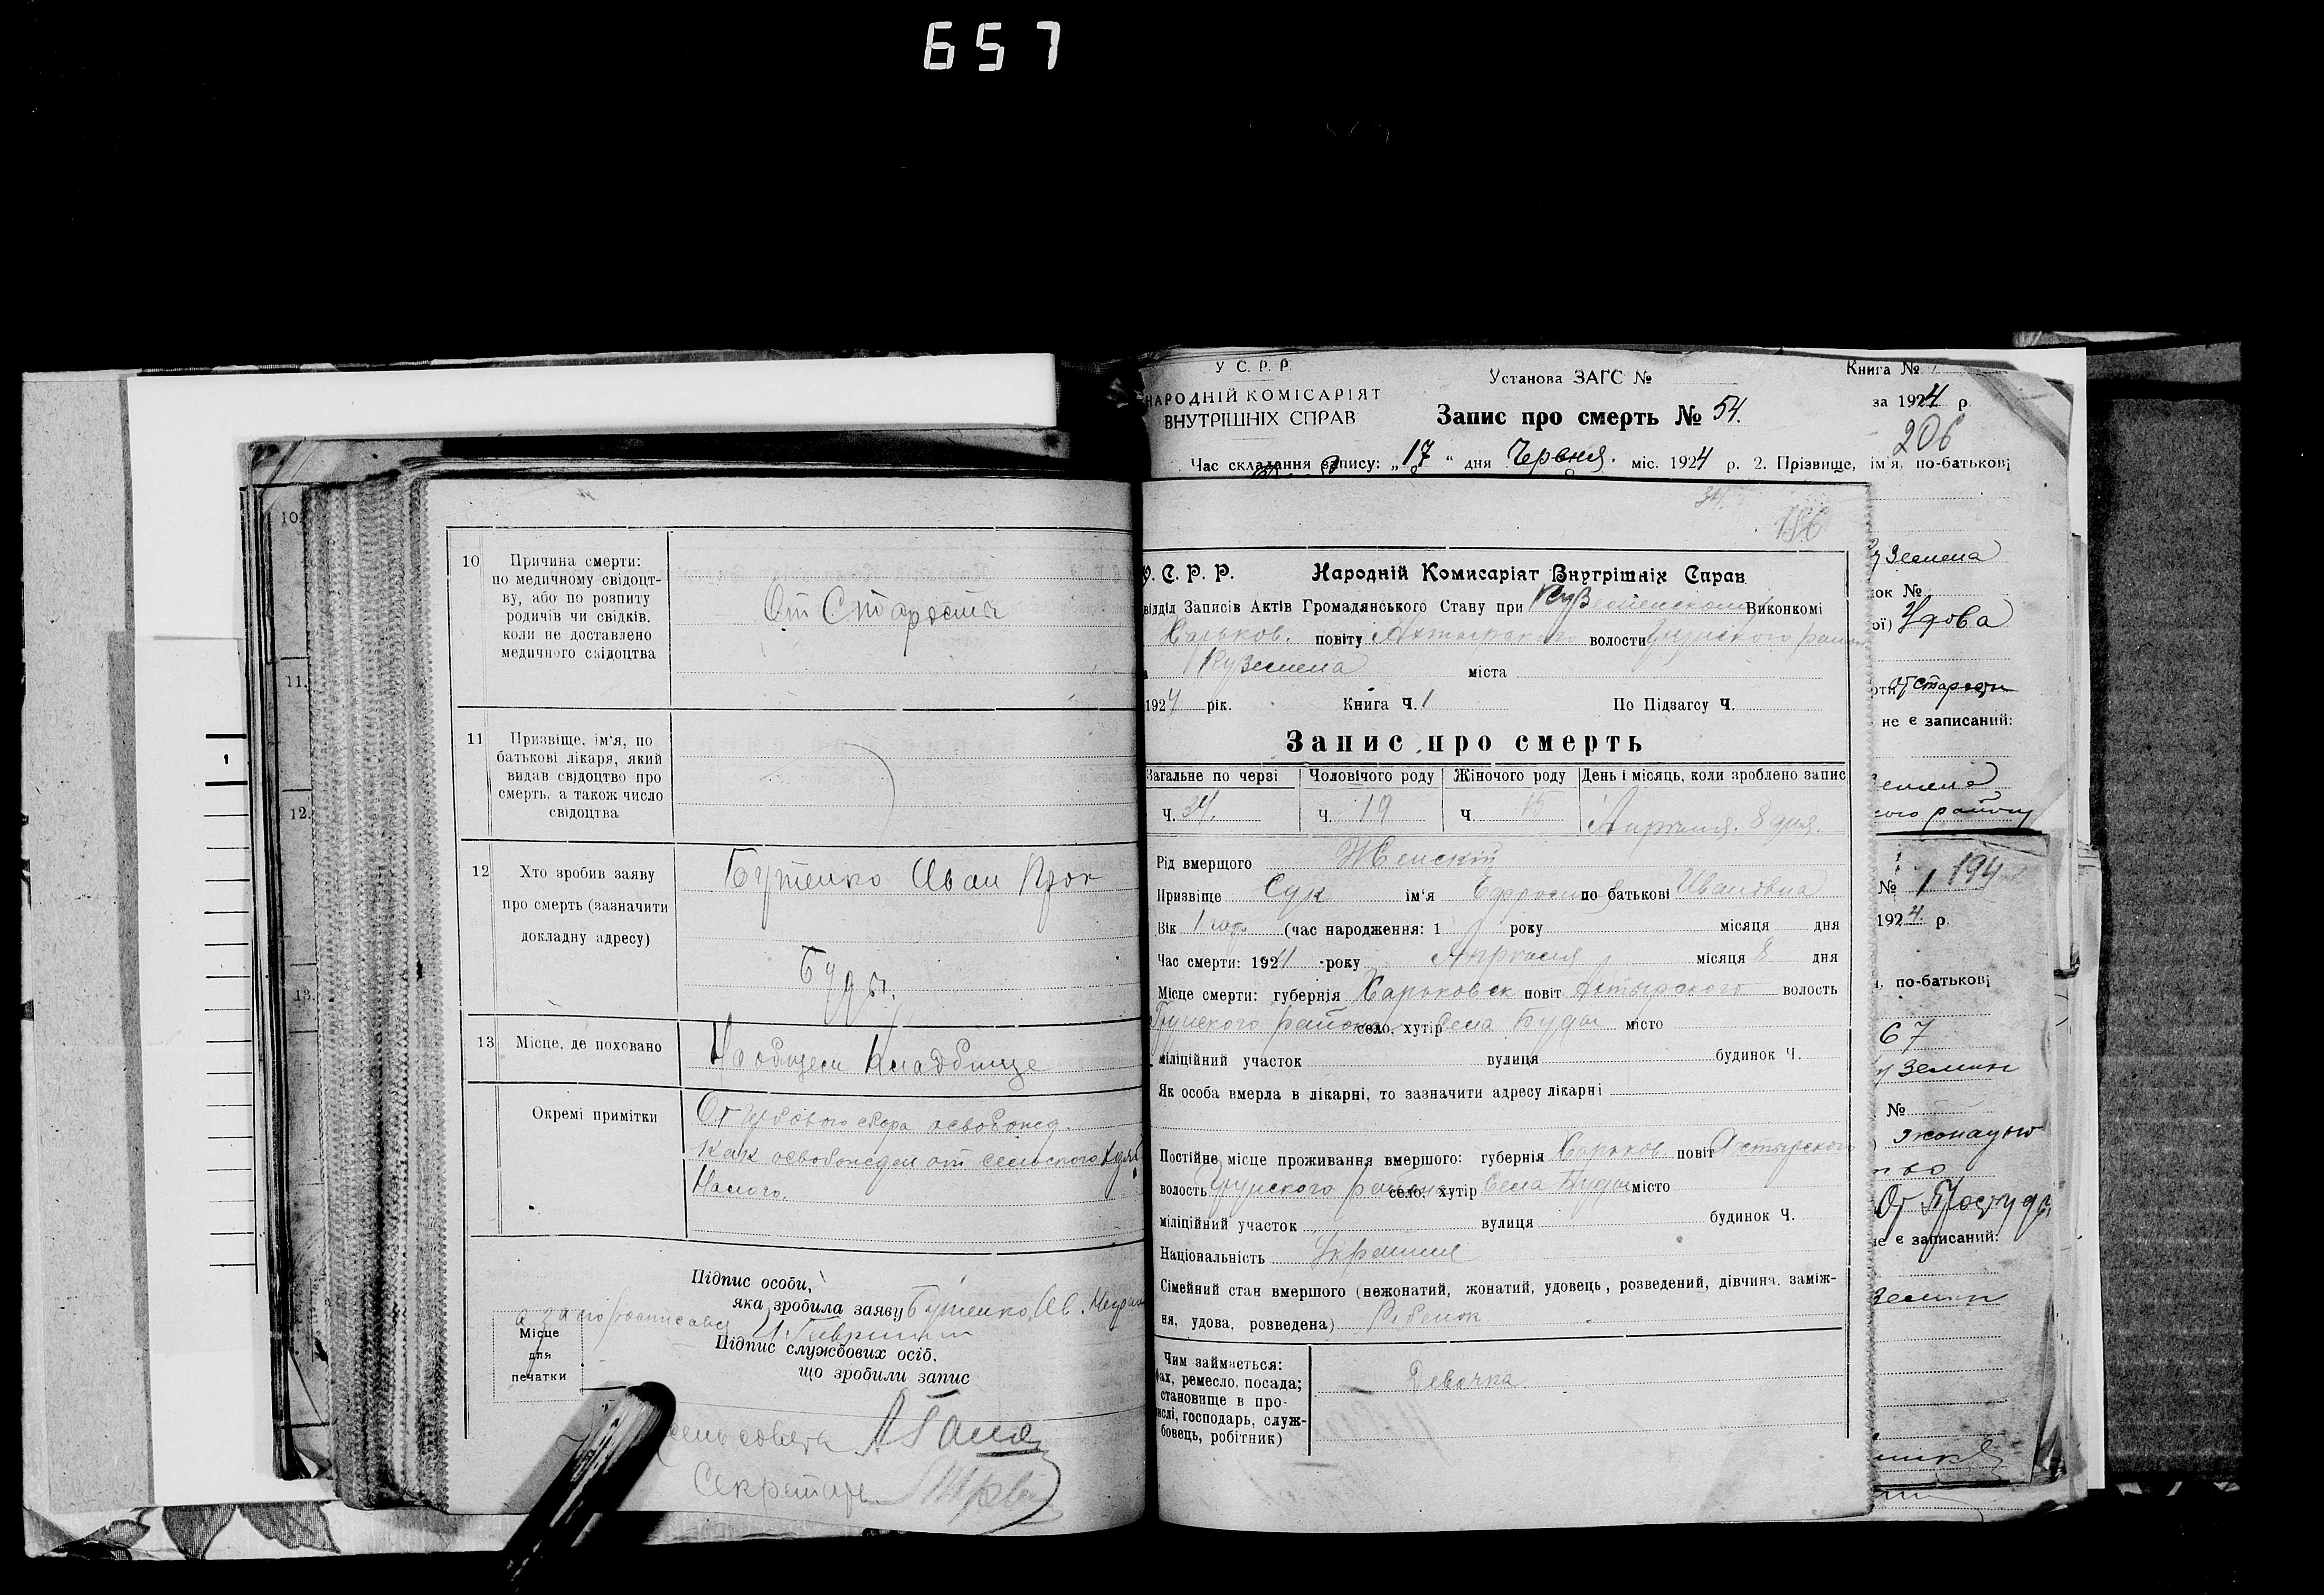 657
10
Причина смерти:
по медичному свідоцт-
ву, або по розпиту
родичів чи свідків.
коли не доставлено
медичного свідоцтва
От Старости
11
Призвіще, ім'я, по
батькові лікаря, який
видав свідоцтво про
смерть, а також число
свідоцтва
12
Хто зробив заяву
про смерть (зазначити
докладну адресу)
Бутенко Иван
Буды.
13
Місце, де поховано
На общем Кладбище
Окремі примітки
Підпис особи,
яка зробила заяву Бутенко Ив.
Підпис службових осіб,
що зробили запис
Місце
для
печатки
Секретарь
10.
11.
12.
13.
1
У С. Р. Р.
НАРОДНІЙ КОМІСАРІЯТ
ВНУТРІШНІХ СПРАВ
Установа ЗАГС №
Книга №
Запис про смерть № 54.
за 1924 р.
206
Час складання запису: „17“ дня Червня. міс. 1924 р. 2. Прізвище, ім'я, по-батькові
34.
186
У. С. Р. Р. Народній Комисаріят Внутрішніх Справ
відділ Записів Актів Громадянського Стану при Виконкомі
Харьков. повіту Ахтырского волости
Куземена міста
1924 рік. Книга Ч. 1 По Підзагсу Ч.
Запис про смерть
Загальне по черзі Чоловічого роду Жіночого роду День і місяць, коли зроблено запис
Ч. 34. Ч. 19 Ч. 15 Апреля. 8 дня.
Рід вмерщого Женский
Призвіще Сук ім'я по батькові Ивановна
Вік 1 (час народження: 1 року місяця дня
Час смерти: 1924 року Апреля місяця 8 дня
Місце смерти: губернія Харьковск повіт Ахтырского волость
Грунского района село, хутір Села Буды місто
міліційний участок вулиця будинок Ч.
Як особа вмерла в лікарні, то зазначити адресу лікарні
Постійне місце проживання вмершого: губернія Харьков повіт Ахтырского
волость Грунского района село, хутір Села Буды місто
міліційний участок вулиця будинок Ч.
Національність
Сімейний стан вмершого (нежонатий, жонатий, удовець, розведений, дівчина, заміж-
ня, удова, розведена) Ребенок
Чим займається:
фах, ремесло, посада;
становище в про-
мислі, господарь, служ-
бовець, робітник)
Девочка
Удова
не є записаний:
№ 1 194
1924 р.
по-батькові
67
№
От Простуды
не є записаний: